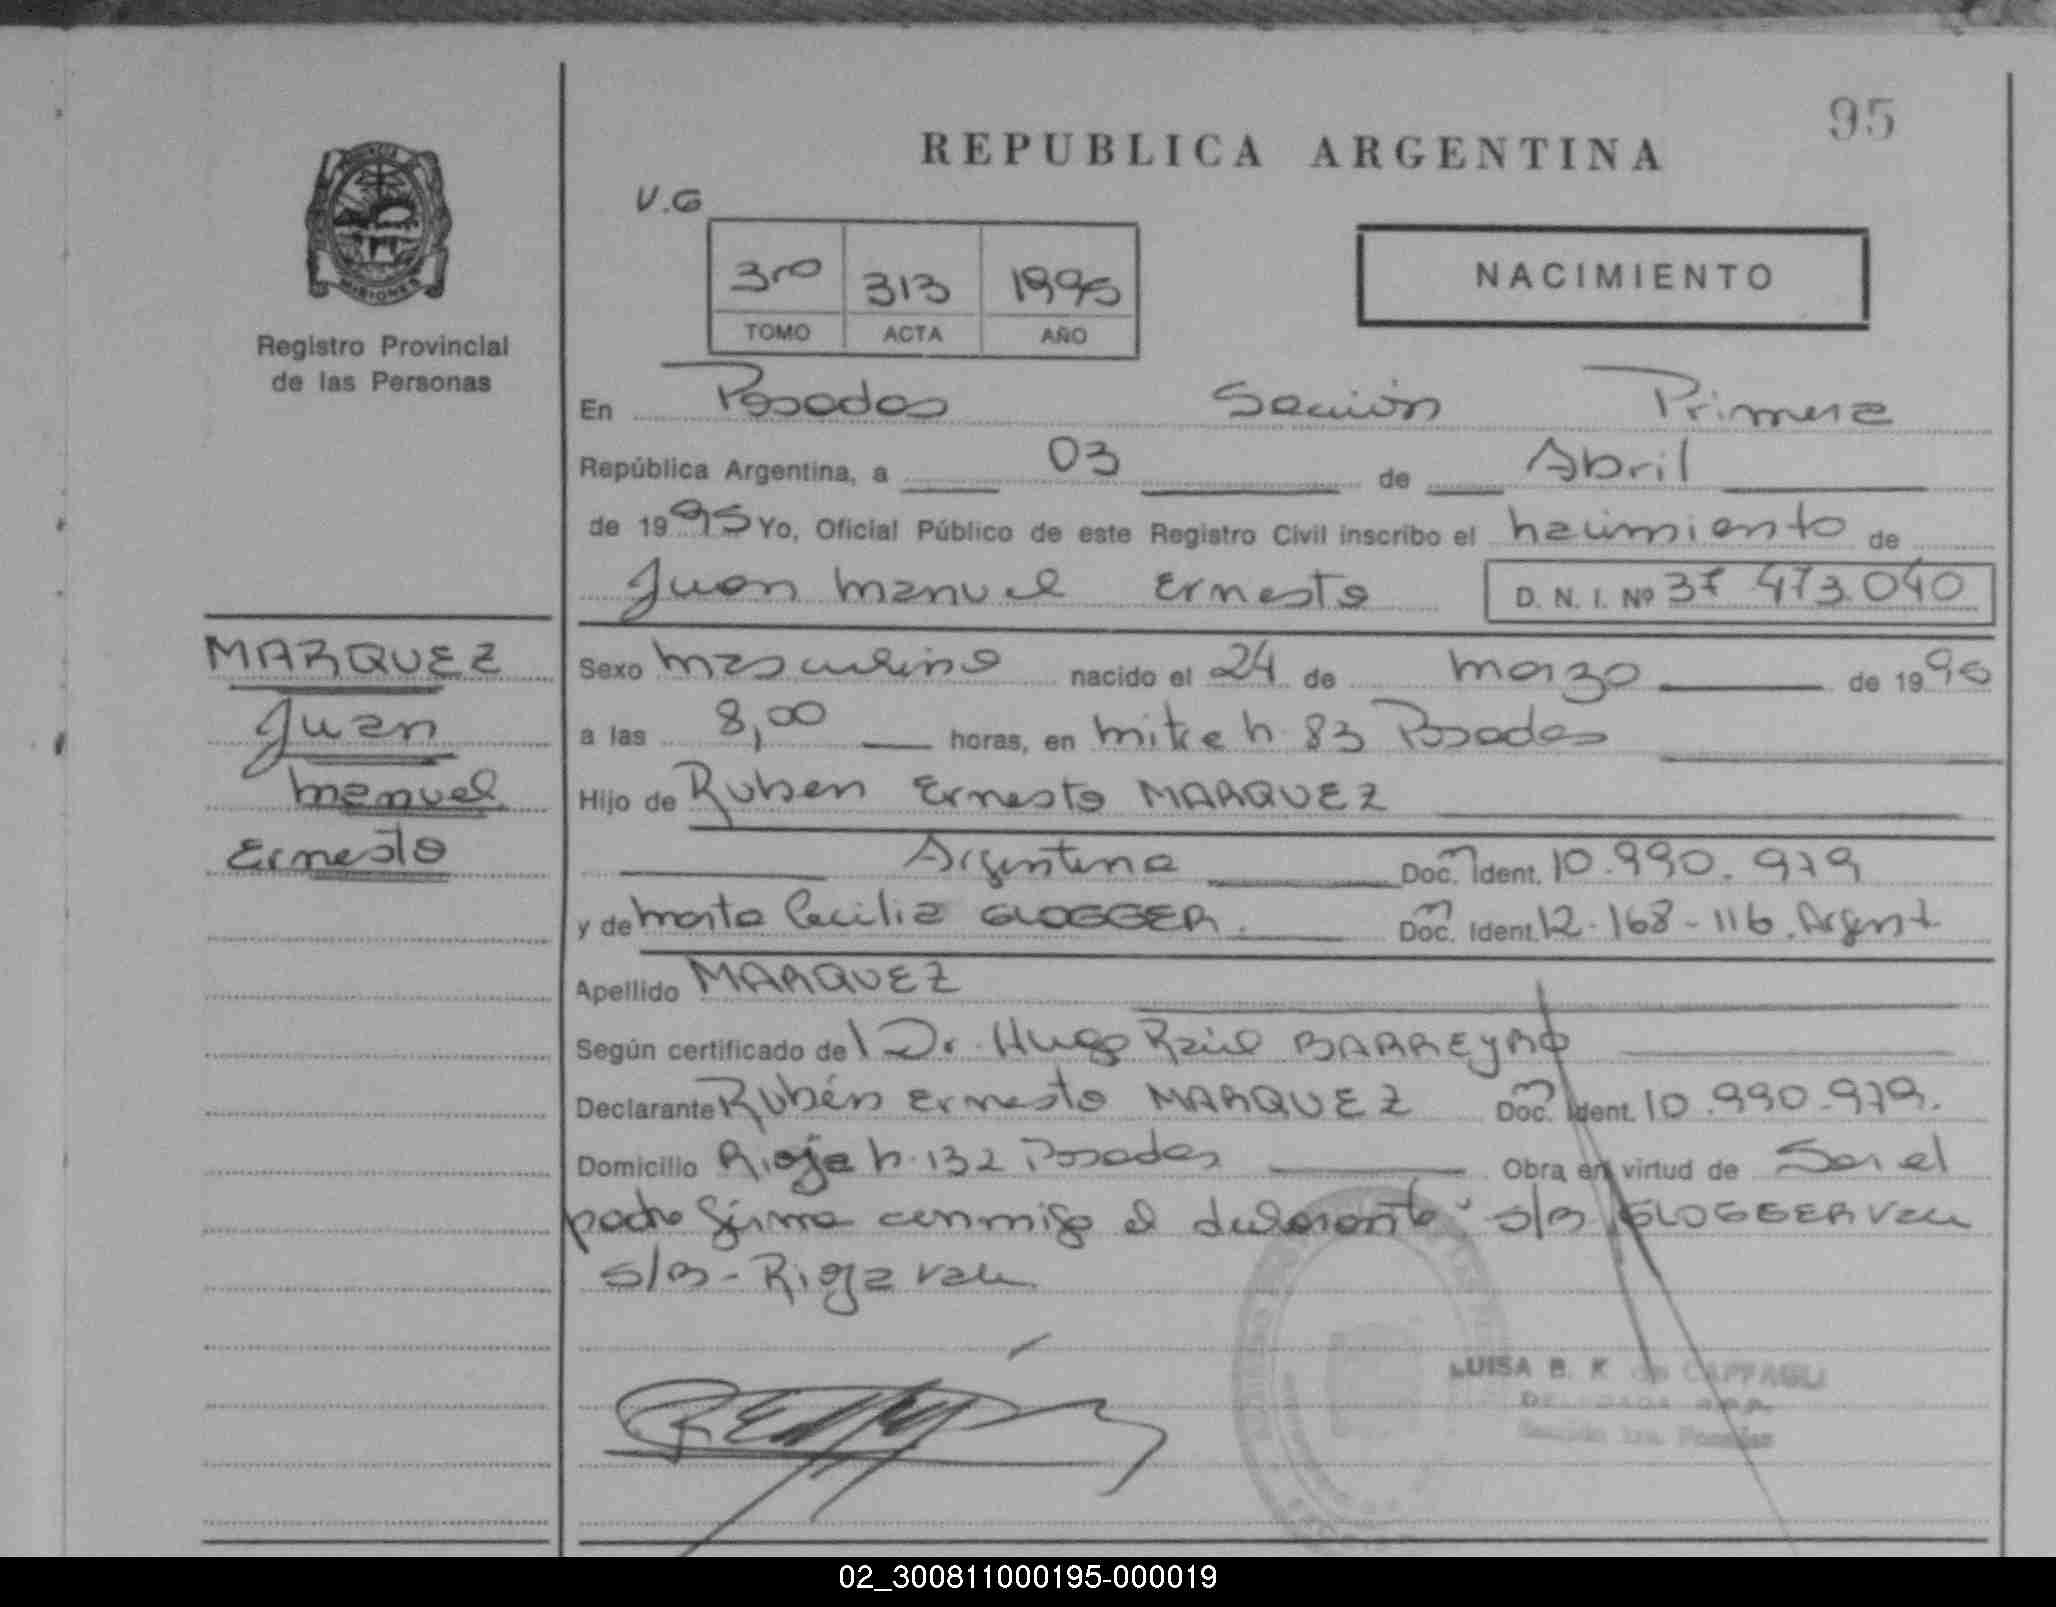 95
REPUBLICA ARGENTINA
V.G
3ro 313 1995
TOMO ACTA AÑO
NACIMIENTO
MISIONES
Registro Provincial
de las Personas
En Posadas Sección Primera
República Argentina, a 03 de Abril
de 1995 Yo, Oficial Público de este Registro Civil inscribo el nacimiento de
Juan Manuel Ernesto D. N. I. Nº 37 473.040
MARQUEZ
Juan
Manuel
Ernesto
Sexo Masculino nacido el 24 de Marzo de 1995
a las 8,00 horas, en Mitre n. 83 Posadas
Hijo de Ruben Ernesto MARQUEZ
Argentina Doc. Ident. 10.990.979
y de Marta Cecilia GLOGGER. Doc. Ident. 12-168-116. Argent
Apellido MARQUEZ
Según certificado del Dr. Hugo Raúl BARREYRO
Declarante Rubén Ernesto MARQUEZ Doc. Ident. 10.990-979.
Domicilio Rioja n. 132 Posadas Obra en virtud de Ser el
padre firma conmigo el declarante s/B GLOGGER Vale
s/B - Rioja vale
LUISA B. K de CAFFAGLI
DELEGADA
Sección 1ra. Posadas
02_300811000195-000019